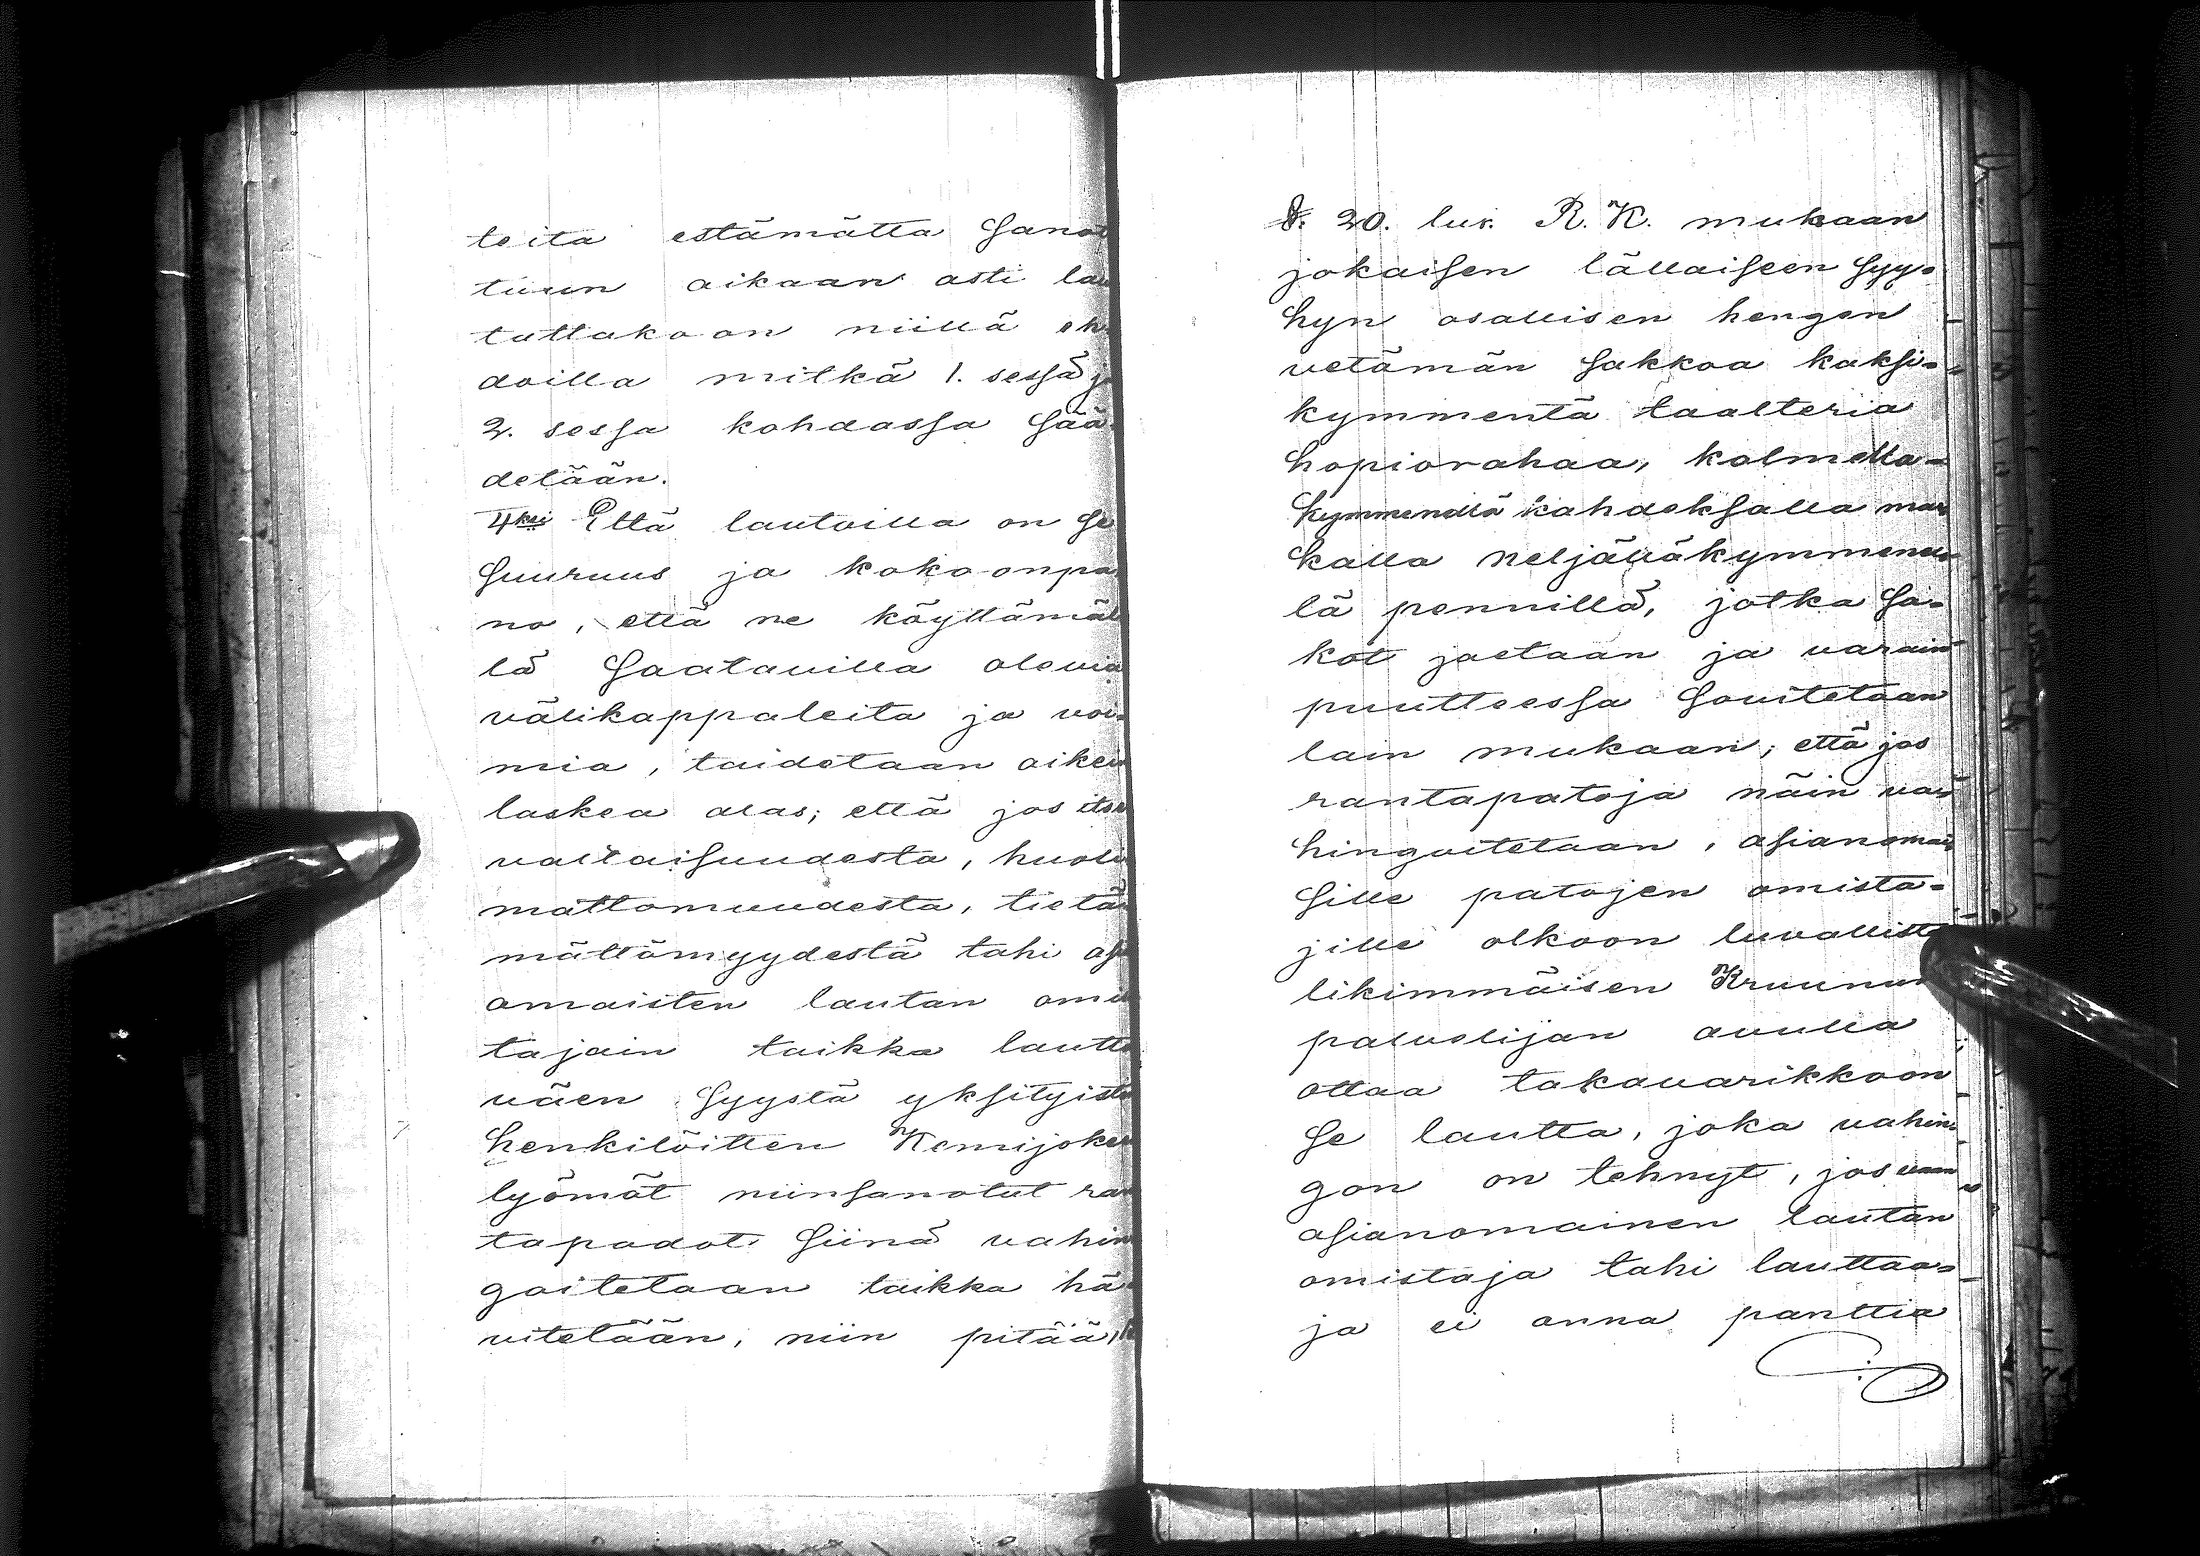 teita estämättä sanot
tuun aikaan asti lau
tattakoon niillä eh
doilla milkä 1. sessä j
2. sessa kohdassa sää
detään.
4ksi Että lautoilla on se
suuruus ja kokoonpa
no, että ne käyttämäl
lä saatavilla olevia
välikappaleita ja voi-
mia, taidetaan aikei
laskea alas; että jos itse
valtaisuudesta, huoli
mattomuudesta, tietä
mättömyydestä tahi asi
omaisten lautan omis
tajain taikka lautta
väen syystä yksityist
henkilöitten Kemijokeen
lyömät niinsanotut ran
tapadot siinä vahin
goitetaan taikka hä
vitetään, niin pitää,
§. 20. luv. R. K. mukaan
jokaisen lällaiseen syy-
hyn osallisen hengen
vetämän sakkoa kaksi-
kymmentä taalteria
hopiorahaa, kolmella-
kymmenellä kahdeksalla mar
kalla neljälläkymmenel
lä pennillä, jotka sa-
kot jaetaan ja varain
puutteessa sovitetaan
lain mukaan; että jos
rantapatoja näin va-
hingoitetaan, asianomai
sille patojen omista-
jille olkoon luvallista
likimmäisen Kruunun
palvelijan avulla
ottaa takavarikkoon
se lautta, joka vahin-
gon on tehnyt, jos vaan
asianomainen lautan
omistaja tahi lauttaa-
ja ei anna panttia